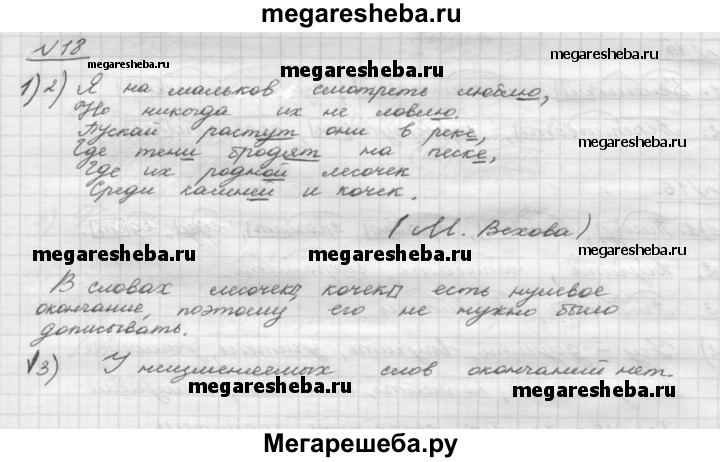 megaresheba.ru
№18
megaresheba.ru
1) 2) Я на мальков смотреть люблю,
megaresheba.ru
Но никогда их не ловлю.
Пускай растут они в реке,
Где тени бродят на песке,
Где их родной лесочек
Среди камней и кочек.
(М. Вехова)
megaresheba.ru
megaresheba.ru
В словах лесочек, кочек есть нулевое
окончание, поэтому его не нужно было
дописывать.
3) У неизменяемых слов окончаний нет.
megaresheba.ru
megaresheba.ru
Мегарешеба.ру